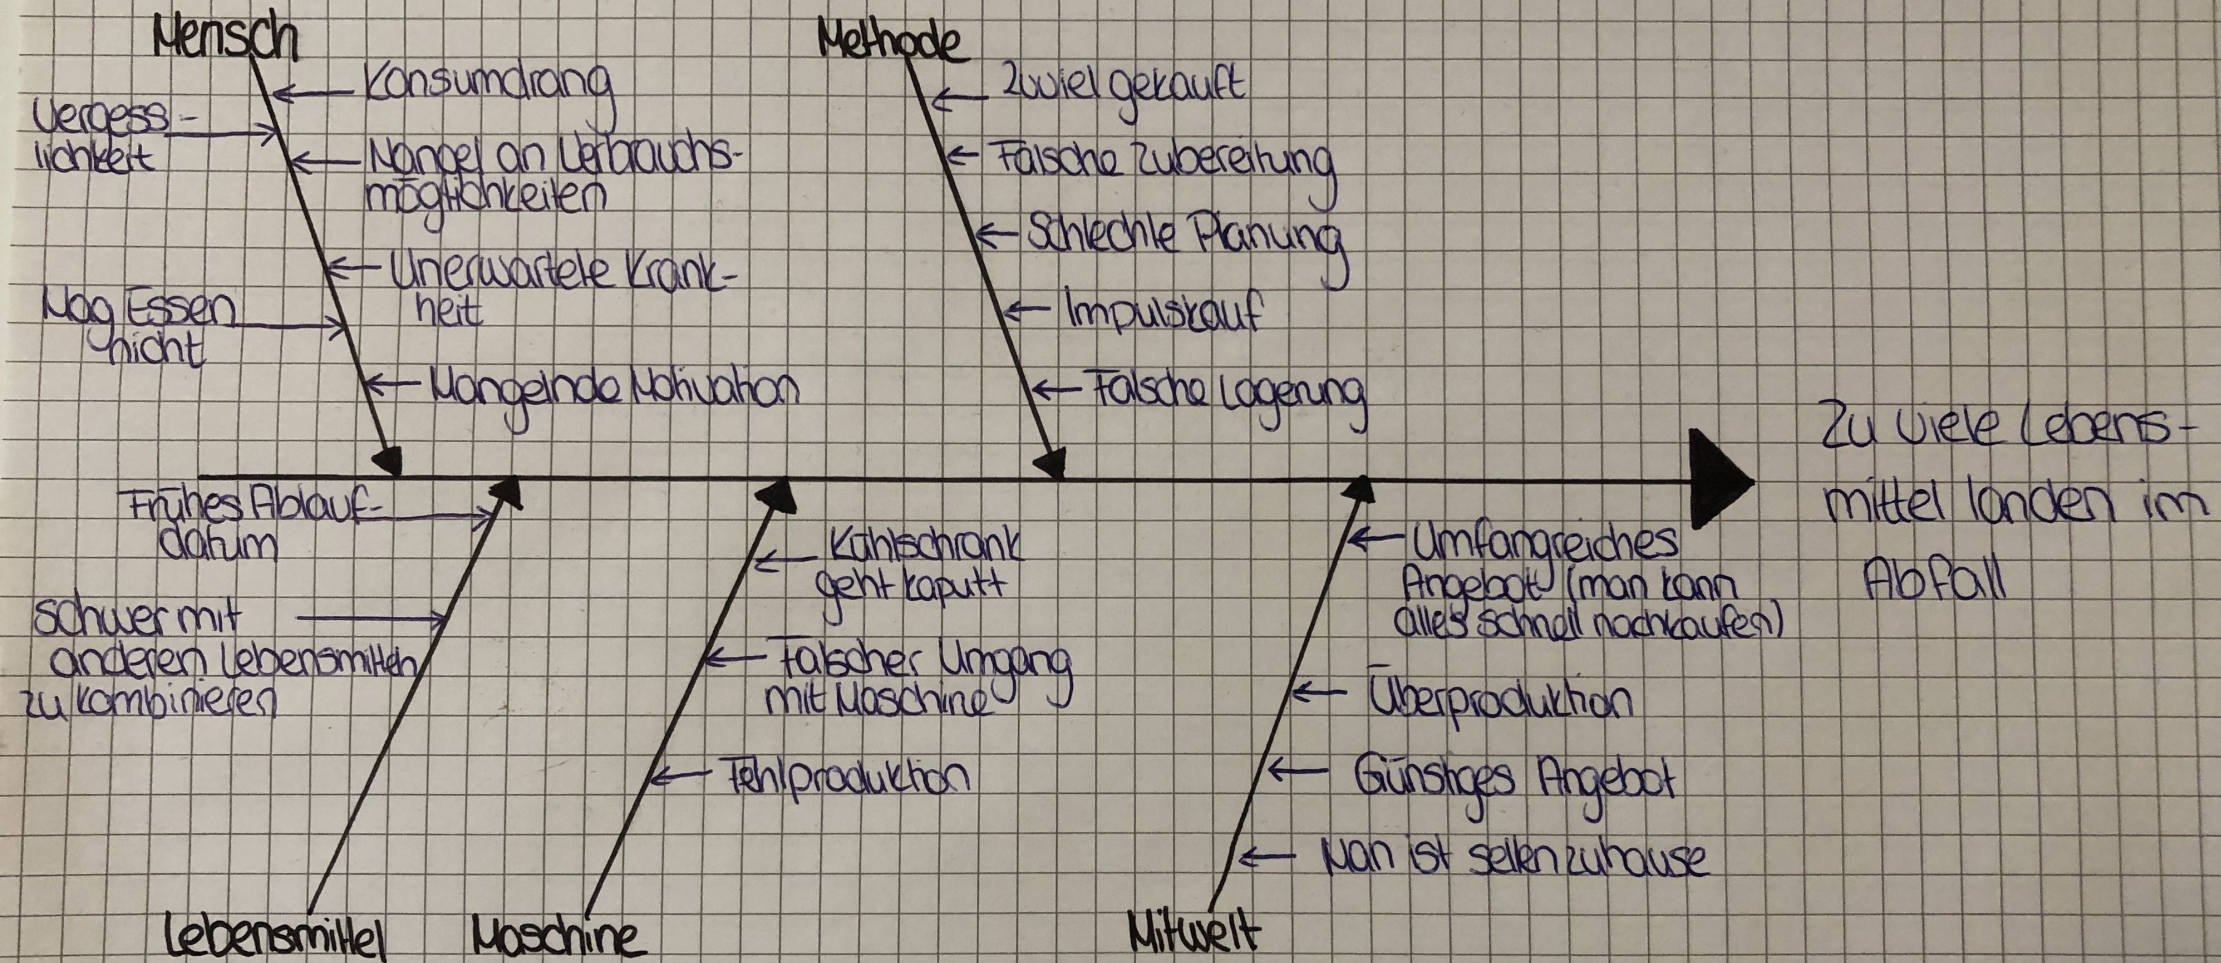 Mensch
Konsumdrang
Vergess-
lichkeit
Mangel an Verbrauchs-
möglichkeiten
Unerwartete Krank-
heit
Mag Essen
nicht
Mangelnde Motivation
Methode
Zuviel gekauft
Falsche Zubereitung
Schlechte Planung
Impulskauf
Falsche Lagerung
Zu viele Lebens-
mittel landen im
Abfall
Frühes Ablauf-
datum
schwer mit
anderen Lebensmitteln
zu kombinieren
Lebensmittel
Kühlschrank
geht kaputt
Falscher Umgang
mit Maschine
Fehlproduktion
Maschine
Umfangreiches
Angebot (man kann
alles schnell nachkaufen)
Überproduktion
Günstiges Angebot
Man ist selten zuhause
Mitwelt